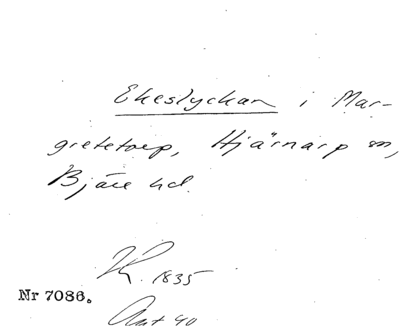 Ekeslyckan i Mar-
gretetorp, Hjärnarp sn,
Bjäre hd.
K. 1835
Nr 7086.
Akt 40